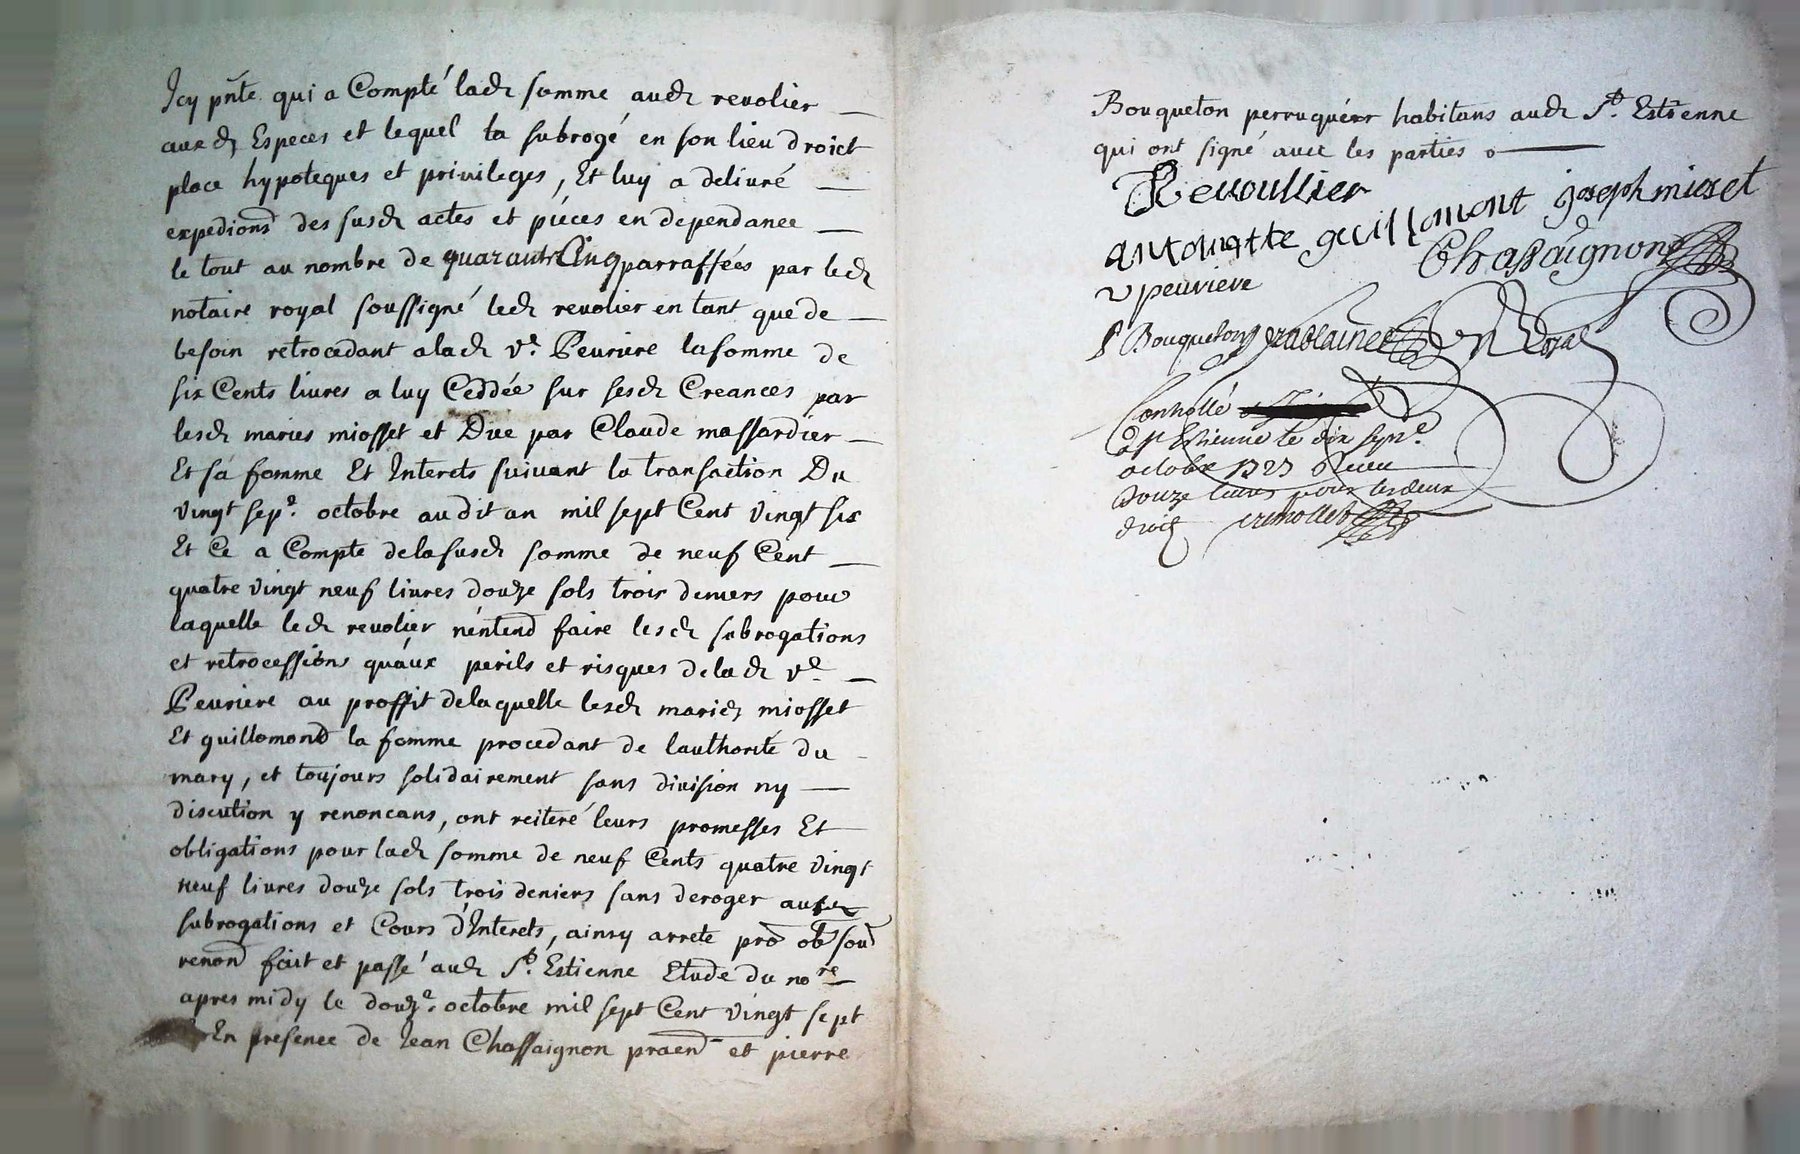 Icy pnte qui a Compté lad somme aud revolier
aux d Especes et lequel la subrogé en son lieu droict
place hypoteques et privileges, Et luy a delivré
expedions des susd actes et piéces en dependance
le tout au nombre de quarante Cinq parraffées par led
notaire royal soussigné led revolier en tant que de
besoin retrocedant a lad ve. Peuriere la somme de
six Cents livres a luy Ceddée sur sesd Creances par
lesd maries miosset et Düe par Claude massardier
Et sa femme Et Interets suivant la transaction Du
vingt sepe. octobre audit an mil sept Cent vingt six
Et Ce a Compte de la susd somme de neuf Cent
quatre vingt neuf livres douze sols trois deniers pour
laquelle led revolier n'entend faire lesd subrogations
et retrocessions qu'aux perils et risques de lad ve.
Peuriere au proffit de laquelle lesd maries miosset
Et guillomond la femme procedant de l'authorité du
mary, et toujours solidairement sans division ny
discution y renoncans, ont reiteré leurs promesses Et
obligations pour lad somme de neuf Cents quatre vingt
neuf livres douze sols trois deniers sans deroger aux
subrogations et Cours d'Interets, ainsy arrete pro ob sou
renon fait et passé aud St. Estienne Etude du nore
apres midy le douze. octobre mil sept Cent vingt sept
En presence de Jean Chassaignon praend et pierre
Bouqueton perruquier habitans aud St. Estienne
qui ont signé avec les parties
Revoullier
antoinette guillomont joseph miozet
Chassaignon
v peuriere
P Bouqueton
Controllé
a St Estienne le dix sepe.
octobre 1727 Receu
Douze livres pour les deux
droits